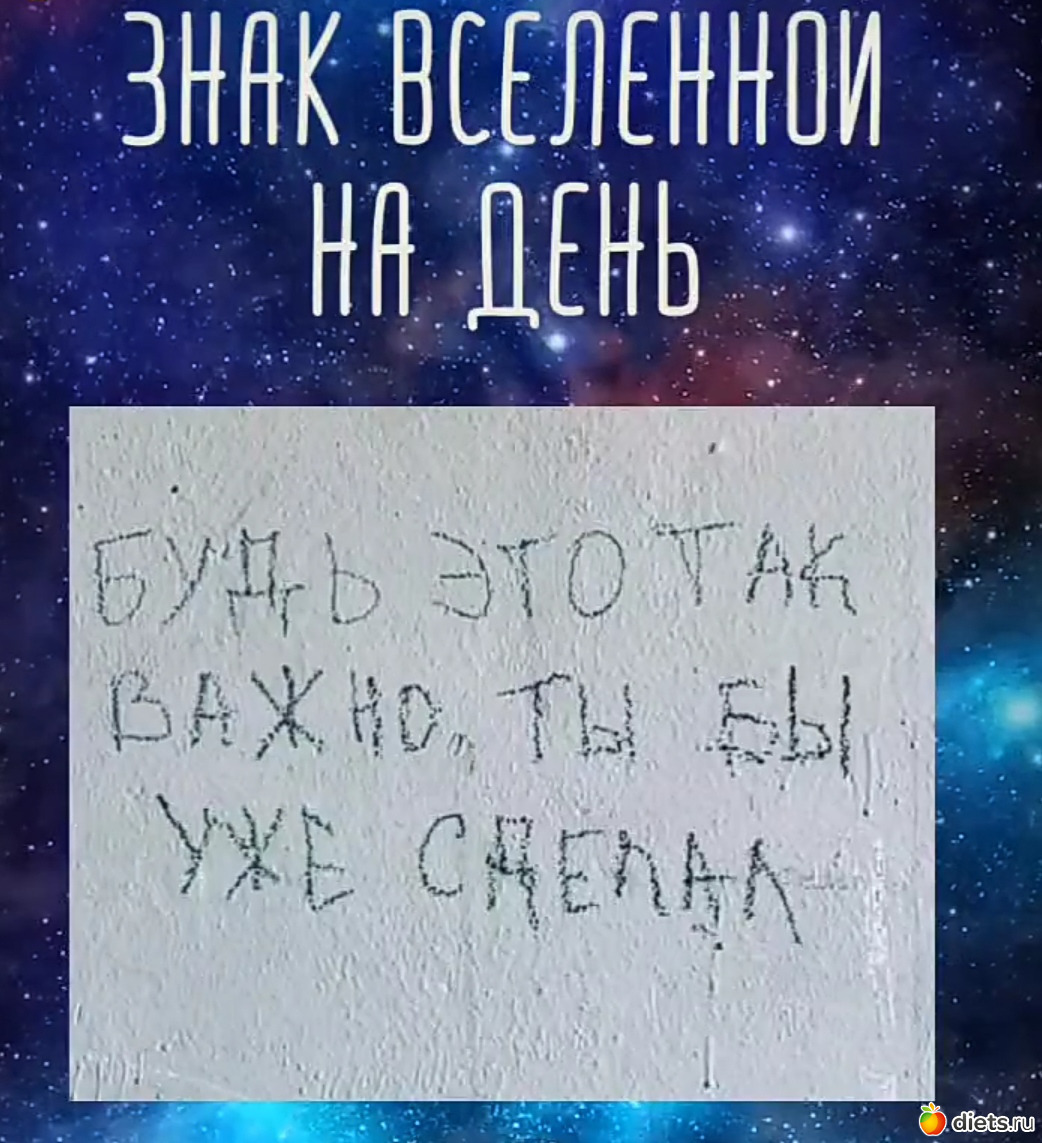 ЗНАК ВСЕЛЕННОЙ
НА ДЕНЬ
БУДЬ ЭТО ТАК
ВАЖНО, ТЫ БЫ
УЖЕ СДЕЛАЛ
diets.ru